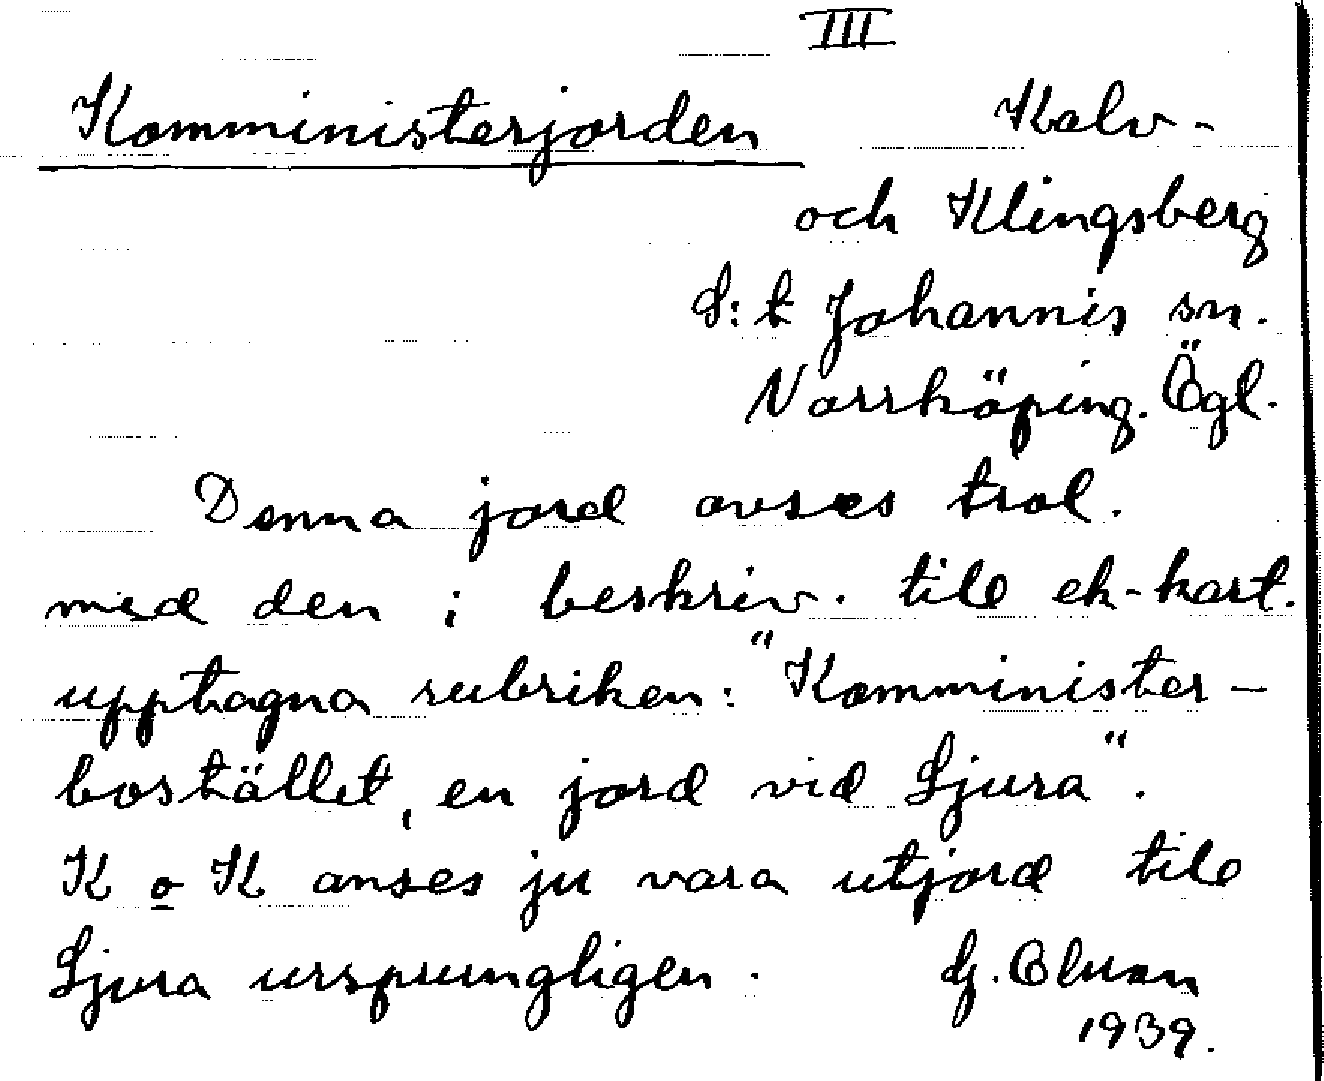 III
Komministerjorden Kalv-
och Klingsberg
S:t Johannis sn.
Norrköping. Ögl.
Denna jord avses trol.
med den i beskriv. till ek-kart.
upptagna rubriken: "Komminister-
bostället, en jord vid Ljura".
K o K anses ju vara utjord till
Ljura ursprungligen. G.
1939.